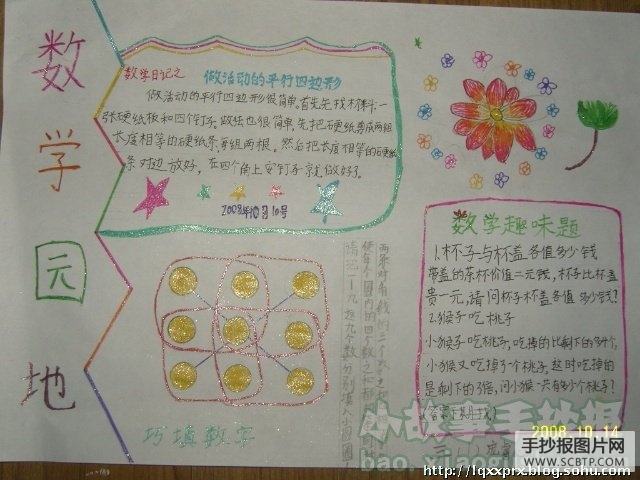 数学园地
数学日记之 做活动的平行四边形
做活动的平行四边形很简单。首先找木料一
张硬纸板和四个钉子。做法也很简单,先把硬纸剪成两组
长度相等的硬纸条,每组两根。然后把长度相等的硬纸
条对边放好,在四个角上安钉子就做好了。
2008年10月10号
巧填数字
请把1—9这九个数分别填入小圆圈
数学趣味题
1.杯子与杯盖各值多少钱
带盖的茶杯价值二元钱,杯子比杯盖
贵一元,请问杯子杯盖各值多少钱?
2.猴子吃桃子
小猴子吃桃子,吃掉的比剩下的多4个,
小猴又吃掉了一个桃子,这时吃掉的
是剩下的3倍,问小猴一共有多少个桃子?
小故事手抄报
2008 10 14
手抄报图片网
WWW.SCBTP.COM
http://lqxxprx.blog.sohu.com